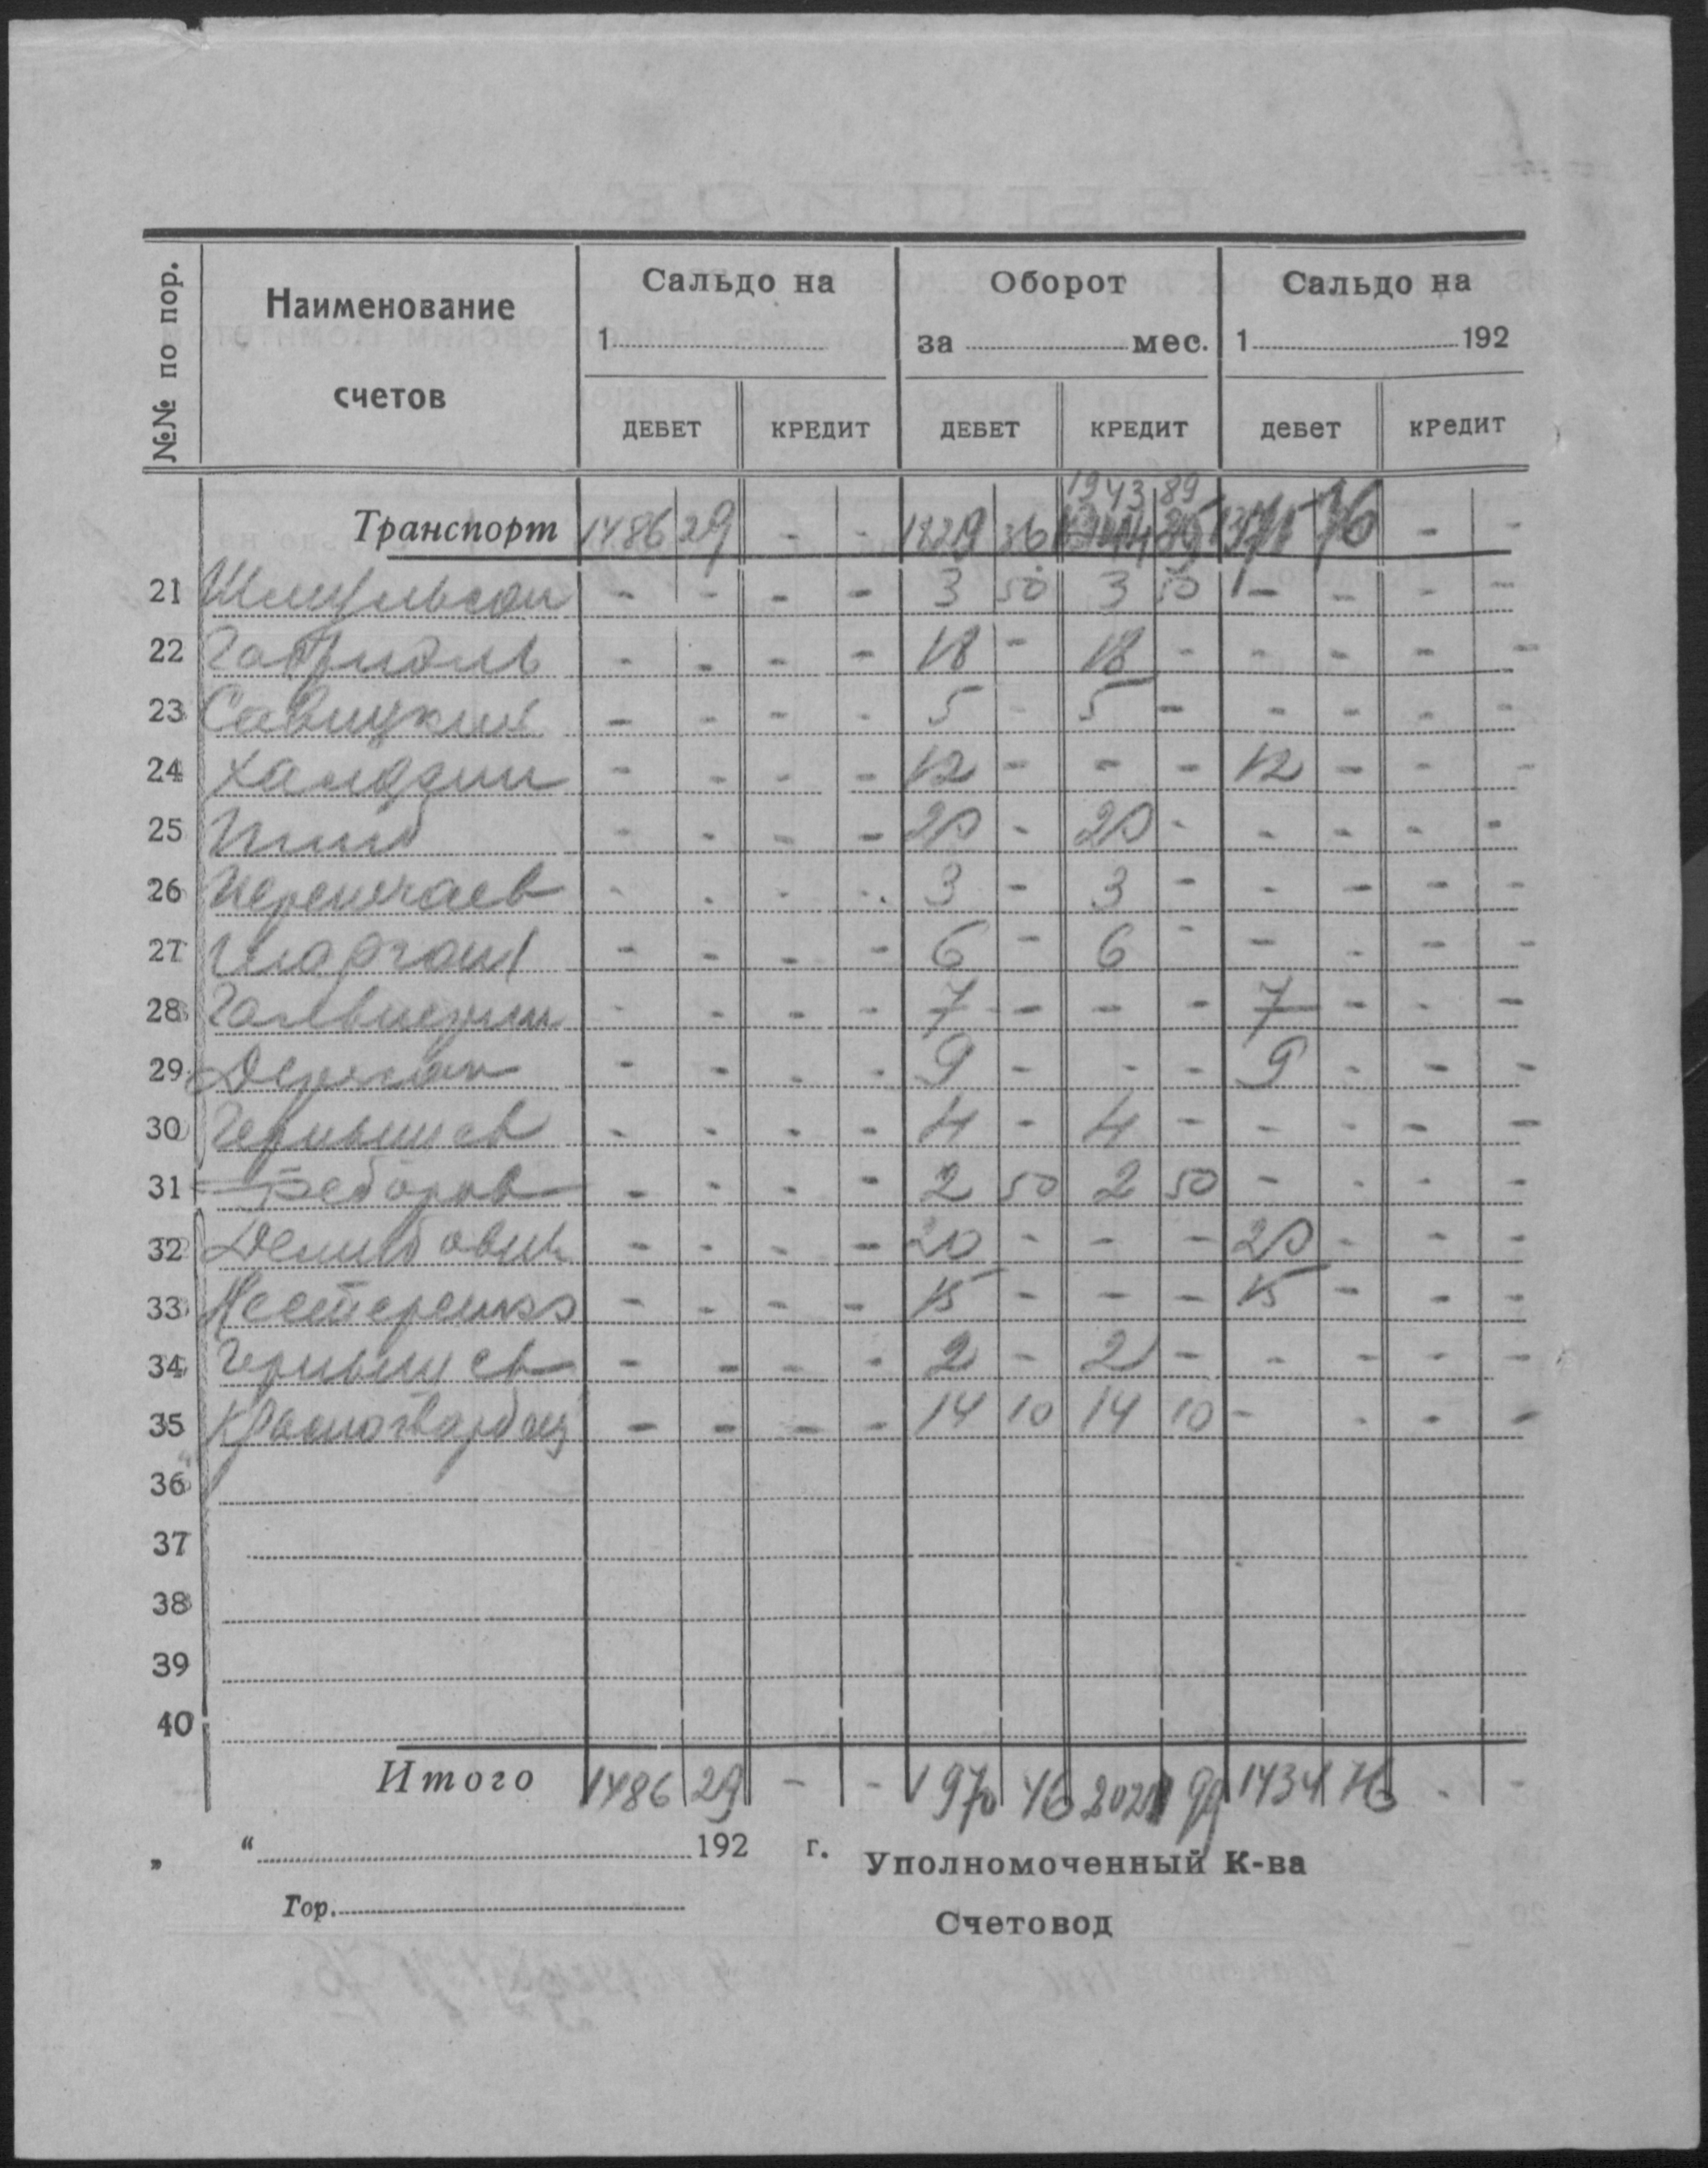 №№ по пор. Наименование счетов Сальдо на Оборот Сальдо на
1 за мес. 1 192
ДЕБЕТ КРЕДИТ ДЕБЕТ КРЕДИТ ДЕБЕТ КРЕДИТ
1943 89
Транспорт 1486 29 - - 1829 36 1371 76 - -
21 Шмульсон - - - - 3 50 3 50 - - - -
22 Габриэль - - - - 18 - 18 - - - - -
23 Савицкий - - - - 5 - 5 - - - - -
24 - - - - 12 - - - 12 - - -
25 - - - - 20 - 20 - - - - -
26 - - - - 3 - 3 - - - - -
27 - - - - 6 - 6 - - - - -
28 - - - - 7 - - - 7 - - -
29 - - - - 9 - - - 9 - - -
30 Чернышев - - - - 4 - 4 - - - - -
31 Федоров - - - - 2 50 2 50 - - - -
32 - - - - 20 - - - 20 - - -
33 Нестеренко - - - - 15 - - - 15 - - -
34 Чернышев - - - - 2 - 2 - - - - -
35 Красногвардеец - - - - 14 10 14 10 - - - -
36
37
38
39
40
Итого 1486 29 - - 1970 46 2021 99 1434 76 - -
„ “ 192 г. Уполномоченный К-ва
Гор.
Счетовод